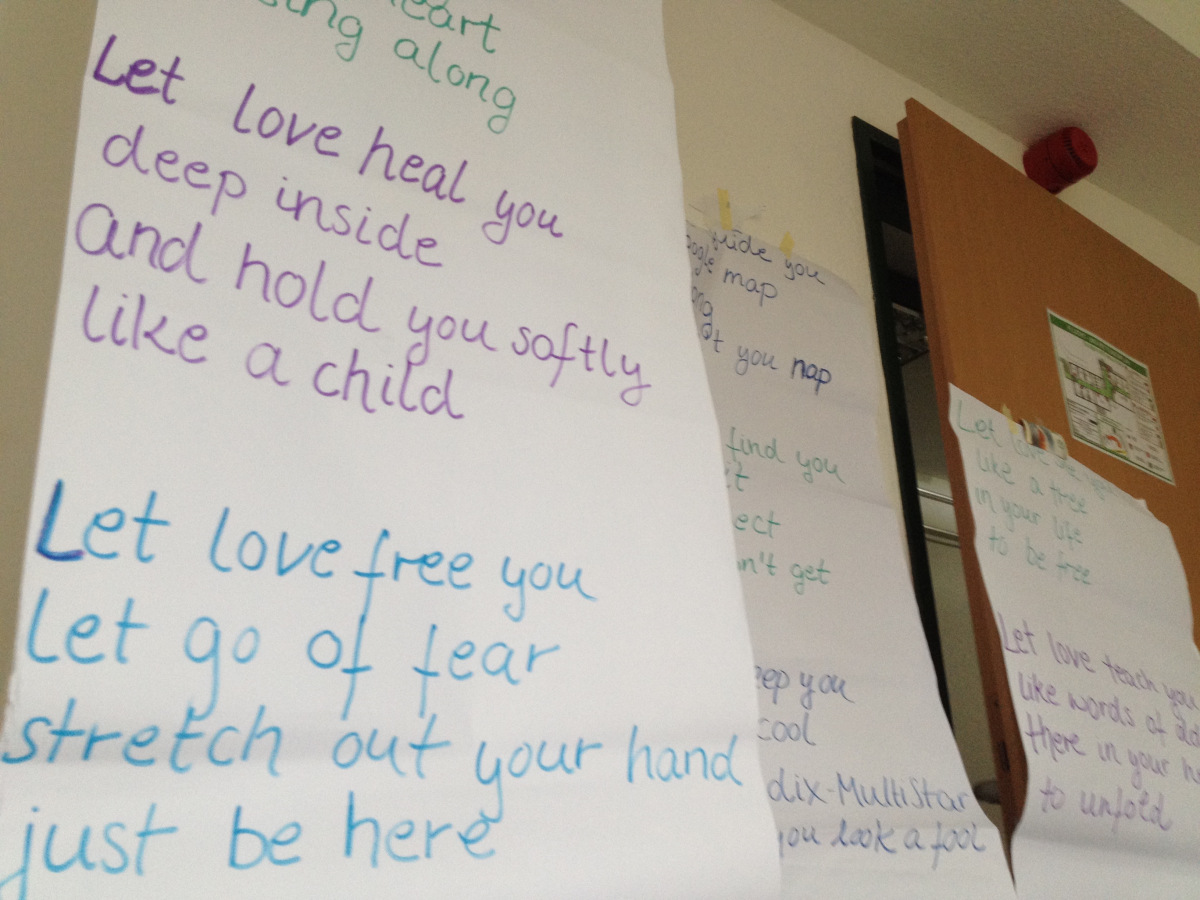 sing along
Let love heal you
deep inside
and hold you softly
like a child
Let love free you
Let go of fear
stretch out your hand
just be here
you
map
you nap
find you
get
you
cool
MultiStar
you look a fool
Let love
like a tree
in your life
to be free
Let love teach you
like words of
there in your
to unfold